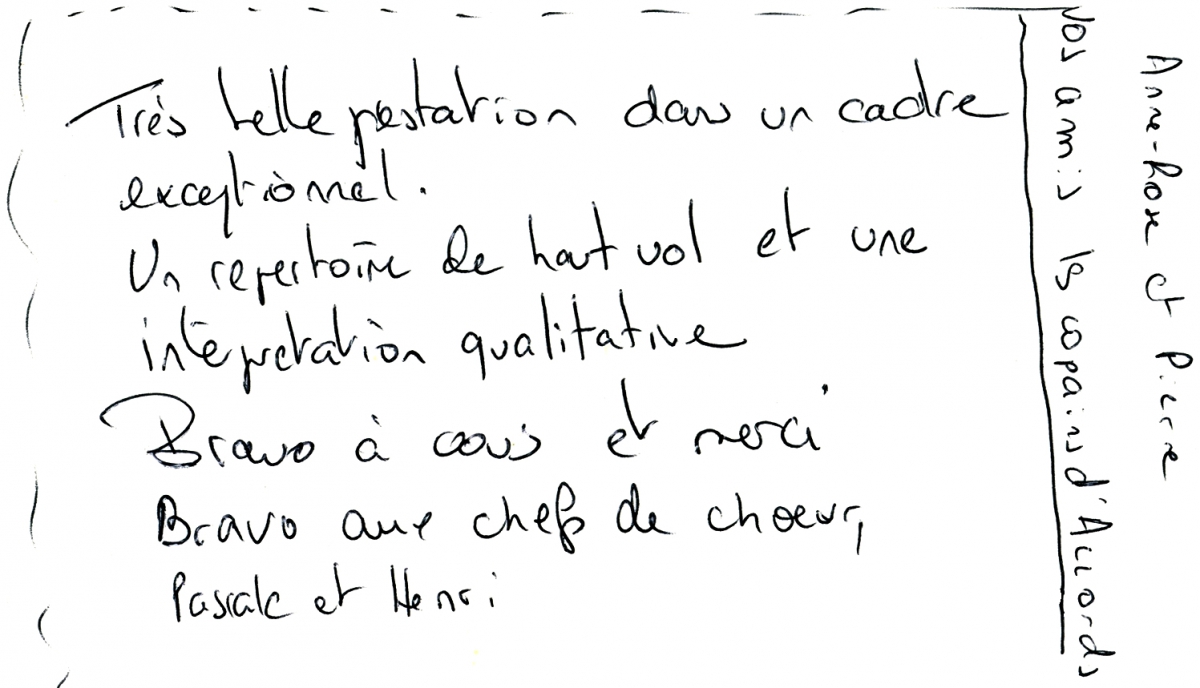 Très belle prestation dans un cadre
exceptionnel.
Un repertoire de haut vol et une
intérpretation qualitative
Bravo à vous et merci
Bravo aux chefs de choeur,
Pascale et Henri
vos amis les copains d'Accords
Anne-Rose et Pierre